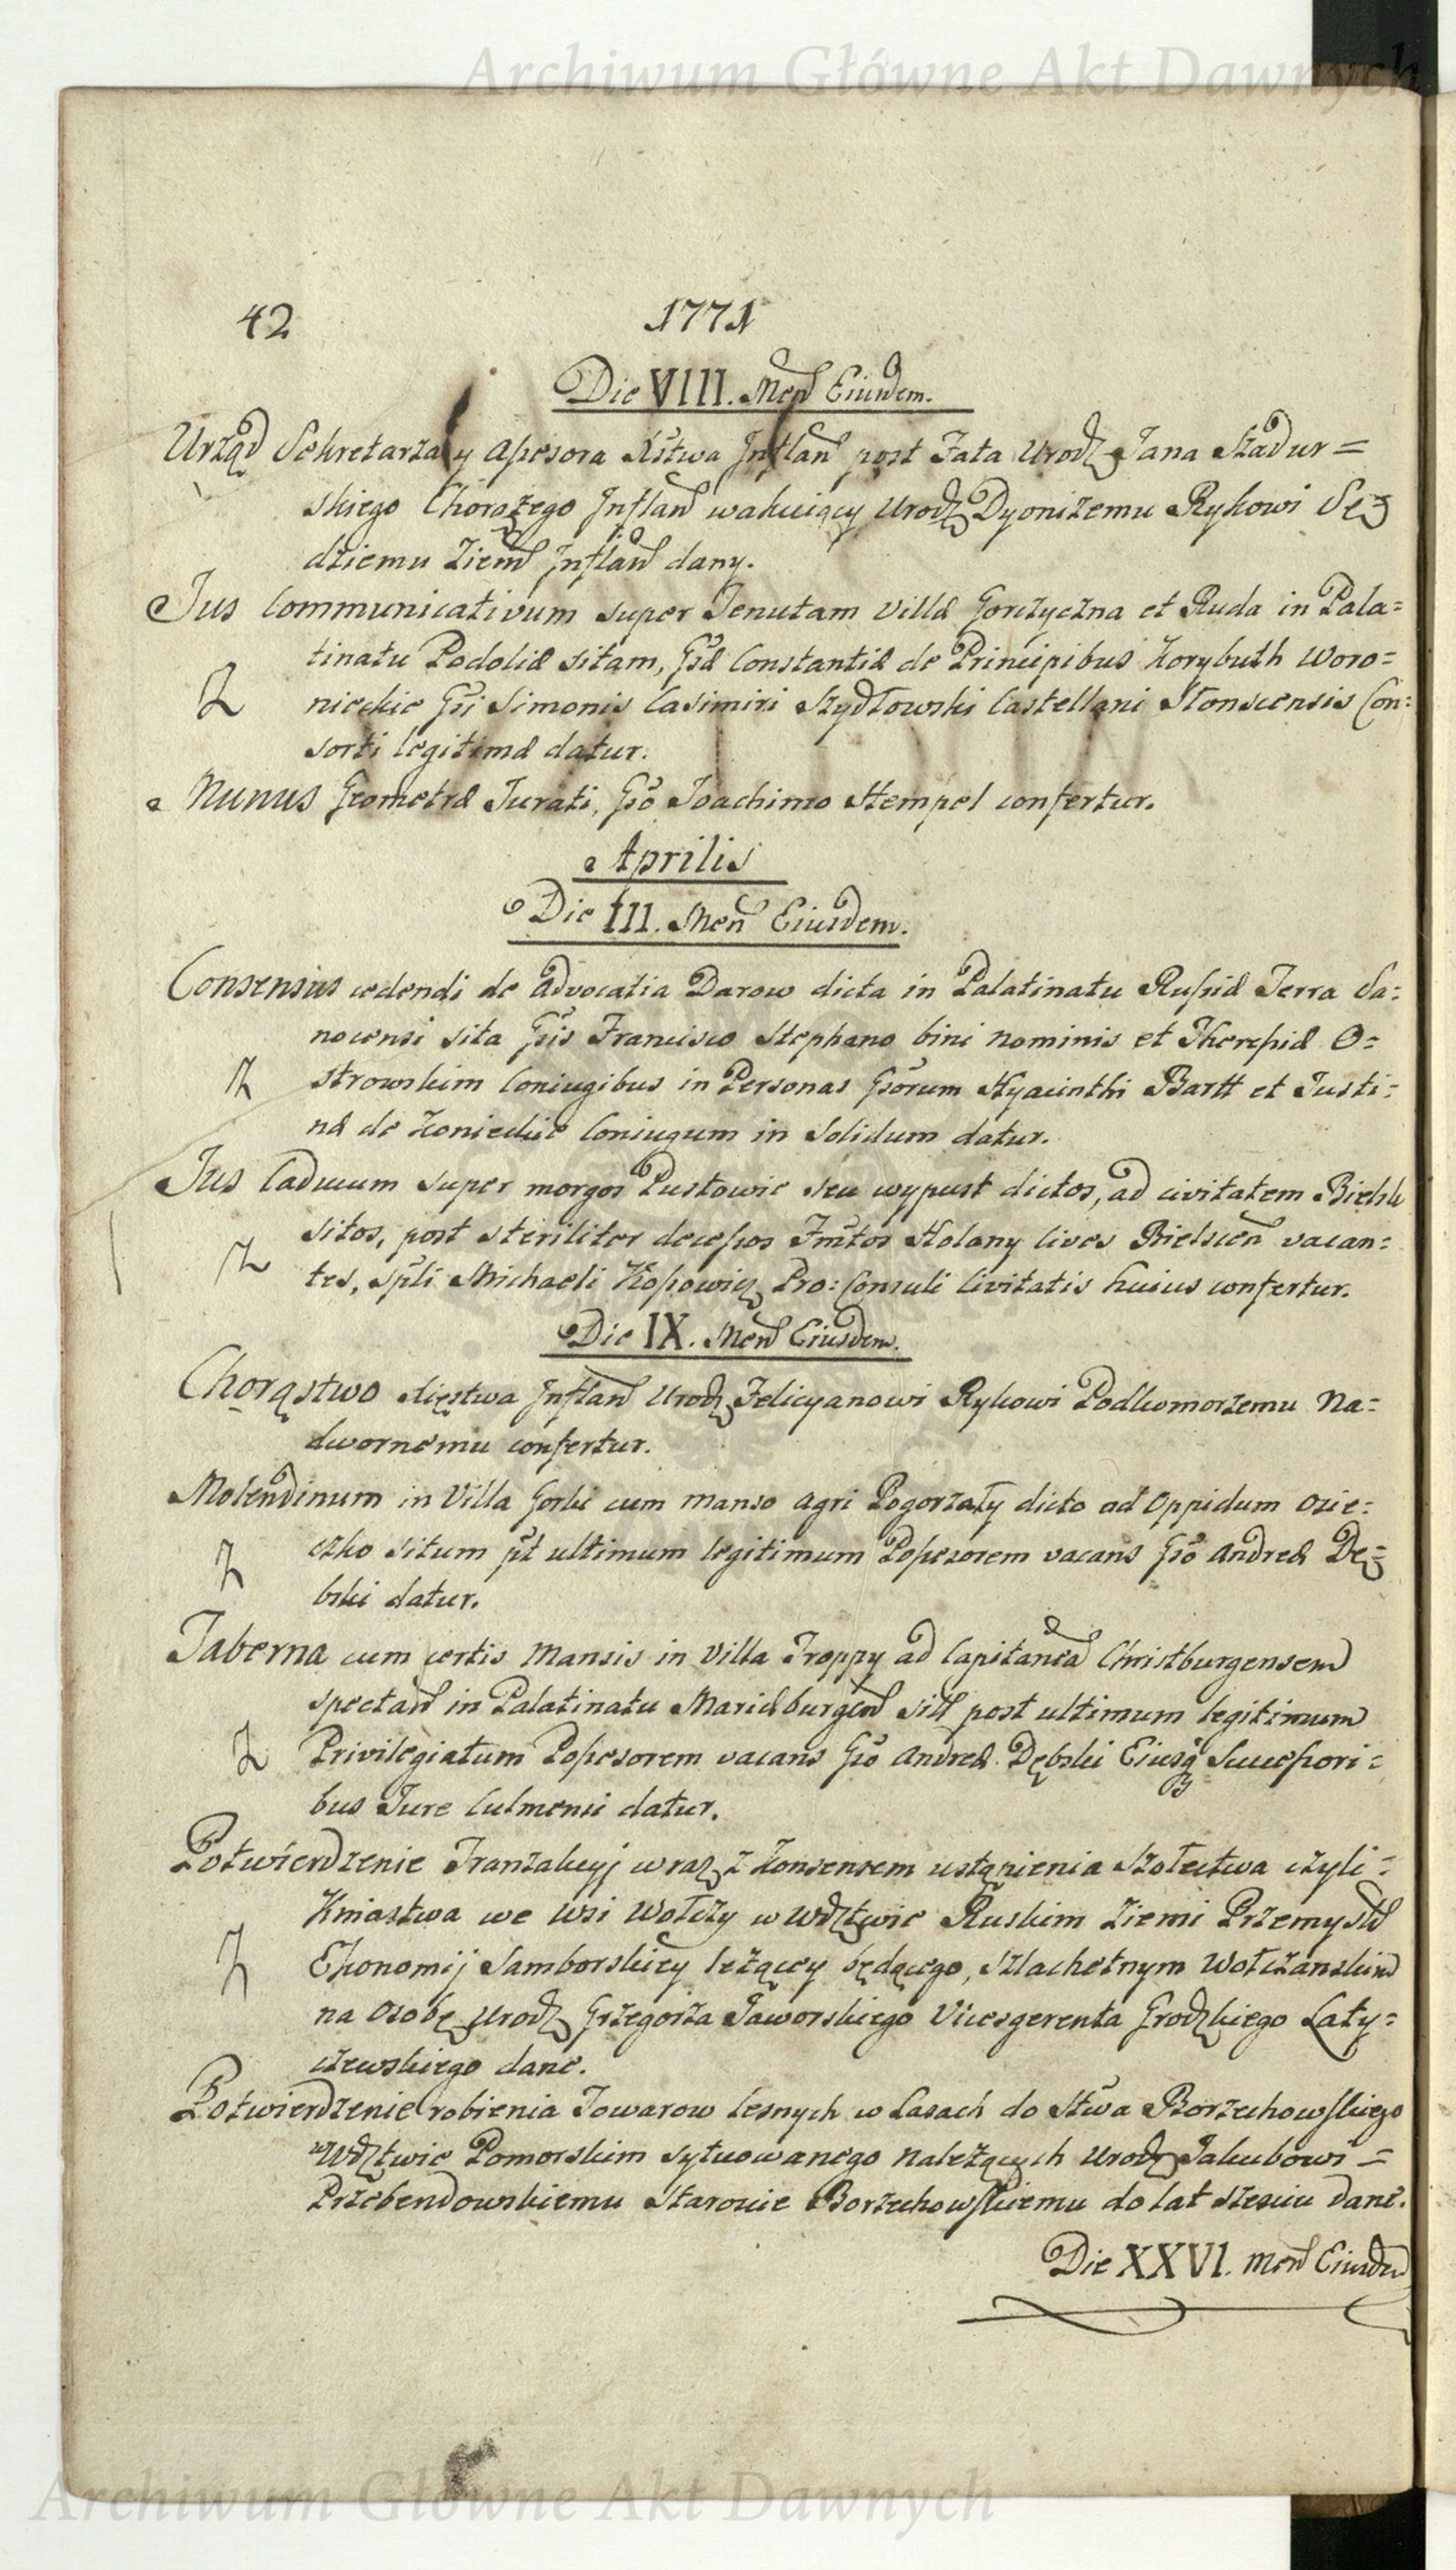 Archiwum Główne Akt Dawnych
42
1771
Die VIII. Men Eiusdem.
Urząd Sekretarza y Assesora Xstwa Inflan post Fata Urodz Jana Szadur=
skiego Chorążego Inflan wakuiący Urodz Dyonizemu Rykowi Sę=
dziemu Ziem Inflan dany.
Jus Communicativum super Tenutam Villæ Gorczyczna et Ruda in Pala=
tinatu Podoliæ sitam, Gsæ Constantiæ de Principibus Korybuth Woro=
nieckie Gsi Simonis Casimiri Szydłowski Castellani Słonscensis Con=
Z
sorti legitimæ datur.
Munus Geometræ Jurati, Gso Joachimo Hempel confertur.
Aprilis
Die III. Men Eiusdem.
Consensus cedendi de Advocatia Darow dicta in Palatinatu Russiæ Terra Sa=
nocensi sita Gsis Francisco Stephano bini nominis et Theressiæ O=
strowskim Coniugibus in Personas Gsorum Hyacinthi Bartt et Justi=
Z
næ de Konieckie Coniugum in solidum datur.
Jus Caducum super morgos Pustowie seu wypust dictos, ad civitatem Bielsk
sitos, post steriliter decessos Fmtos Holany Cives Bielscen vacan=
Z
tes, Spli Michaeli Kossowicz Pro=Consuli Civitatis huius confertur.
Die IX. Men Eiusdem.
Chorąstwo Xięstwa Inflan Urodz Felicyanowi Rykowi Podkomorzemu Na=
dwornemu confertur.
Molendinum in Villa Gorki cum manso agri Pogorzały dicto ad Oppidum Osie=
czko situm pt ultimum legitimum Possessorem vacans Gso Andreæ Dę=
Z
bski datur.
Taberna cum certis Mansis in Villa Troppy ad Capitanea Christburgensem
spectan in Palatinatu Mariæburgen sitt post ultimum legitimum
Privilegiatum Possesorem vacans Gso Andreæ Dębski Eiusq Successori=
Z
bus Jure Culmensi datur.
Potwierdzenie Tranzakcyj wraz z Konsensem ustąpienia Szołectwa czyli=
Kniastwa we wsi Wołczy w Wdztwie Ruskim Ziemi Przemysk
Ekonomij Samborskiey leżącey będącego, Szlachetnym Wołczanskim
Z
na Osobę Urodz Grzegorza Jaworskiego Vicesgerenta Grodzkiego Laty=
czewskiego dane.
Potwierdzenie robienia Towarow lesnych w Lasach do Stwa Borzechowskiego
w Wdztwie Pomorskim sytuowanego należących Urodz Jakubowi=
Przebendowskiemu Staroscie Borzechowskiemu do lat szesciu dane.
Die XXVI. Men Eiusdem
Archiwum Główne Akt Dawnych